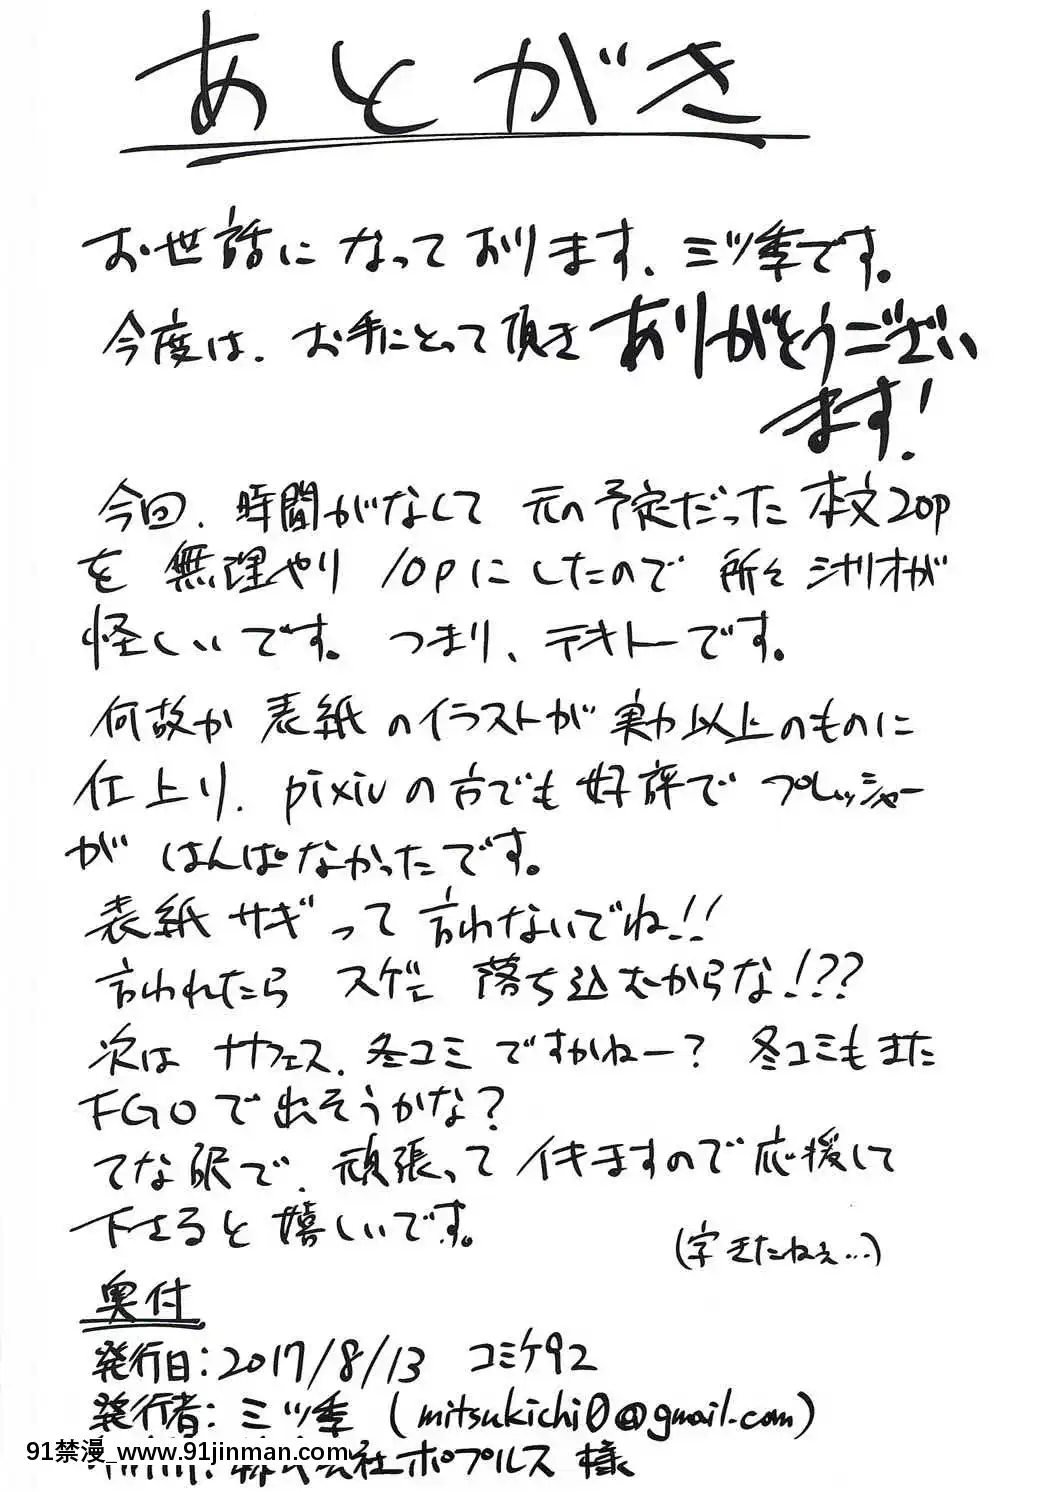 あとがき
お世話になっております、ミツ季です。
今度は、お手にとって頂きありがとうござい
ます!
今回、時間がなくて元の予定だった本文20p
を無理やり10pにしたので所々シナリオが
怪しいです。つまり、テキトーです。
何故か表紙のイラストが実力以上のものに
仕上り、pixivの方でも好評でプレッシャー
がはんぱなかったです。
表紙サギって言わないでね!!
言われたらスゲェ落ち込むからな!??
次はサナフェス、冬コミですかねー?冬コミもまた
FGOで出そうかな?
てな訳で、頑張ってイキますので応援して
下さると嬉しいです。
(字きたねぇ…)
奥付
発行日:2017/8/13 コミケ92
発行者:ミツ季(mitsukichi0@gmail.com)
株式会社ポプルス様
91禁漫_www.91jinman.com